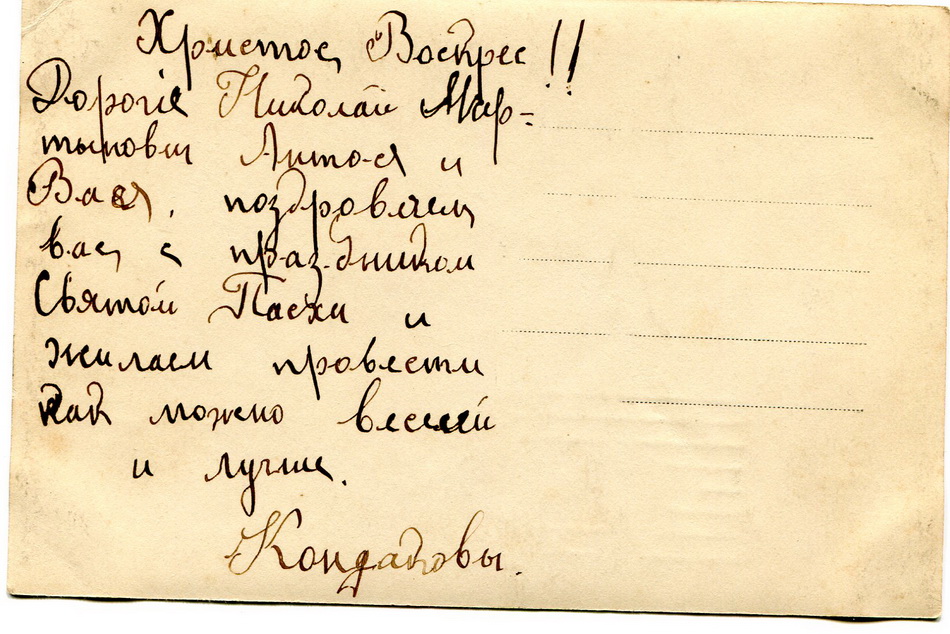 Христос Воскрес!!
Дорогie Николай Мар=
тынович Антося и
Вася, поздровляем
вас с праздником
Святой Пасхи и
жилаем провести
как можно веселей
и лучше.
Кондаковы.